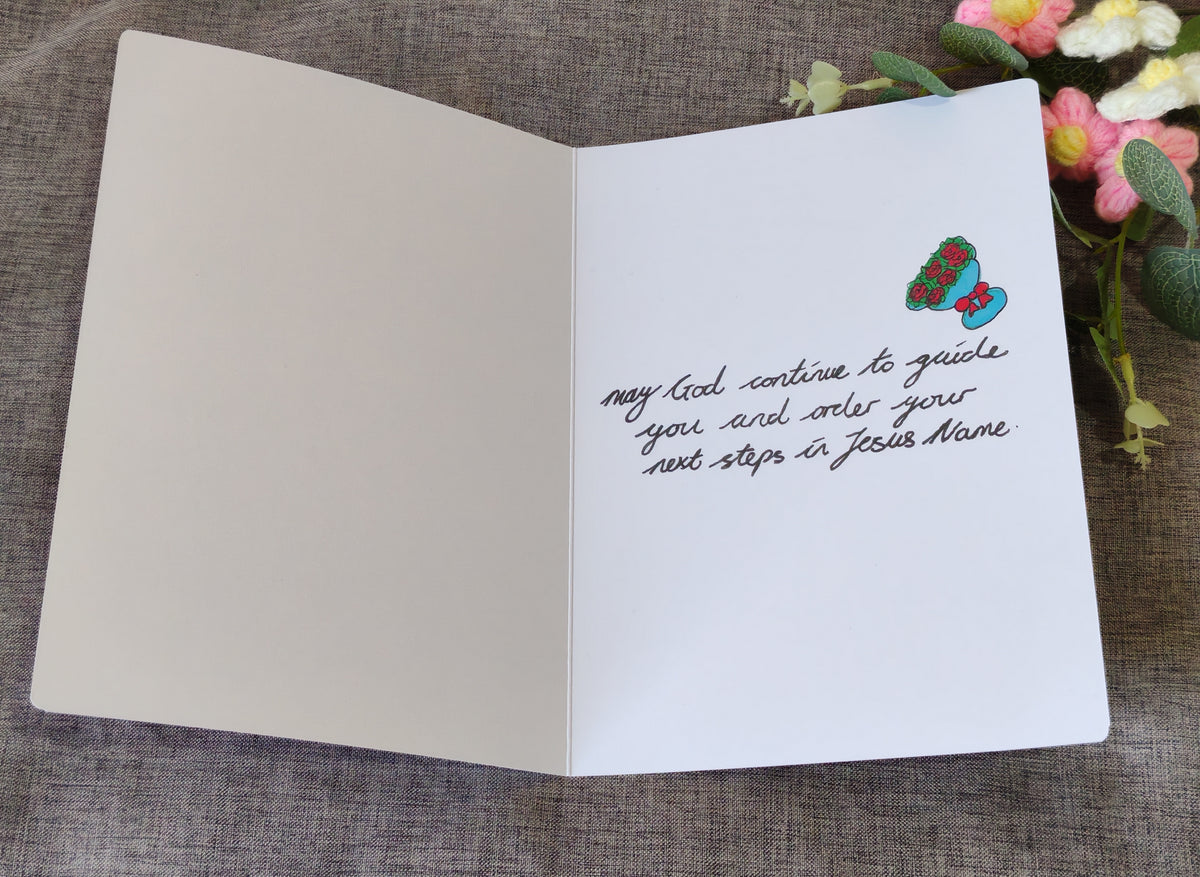 may God continue to guide
you and order your
next steps in Jesus Name.